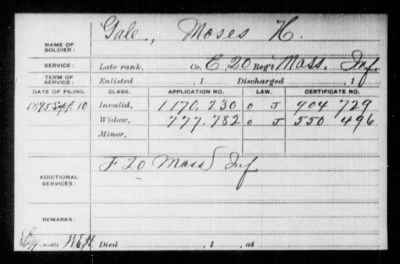 Gale, Moses H.
NAME OF SOLDIER:
SERVICE: Late rank, Co. E. 20 Reg't Mass. Inf
TERM OF SERVICE: Enlisted , 1 Discharged , 1
DATE OF FILING. CLASS. APPLICATION NO. LAW. CERTIFICATE NO.
1895 Sept. 10 Invalid, 1170.230 C J 904 729
Widow, 777.782 C J 550 496
Minor,
ADDITIONAL SERVICES: F 20 Mass Inf
REMARKS:
Died , 1 , at